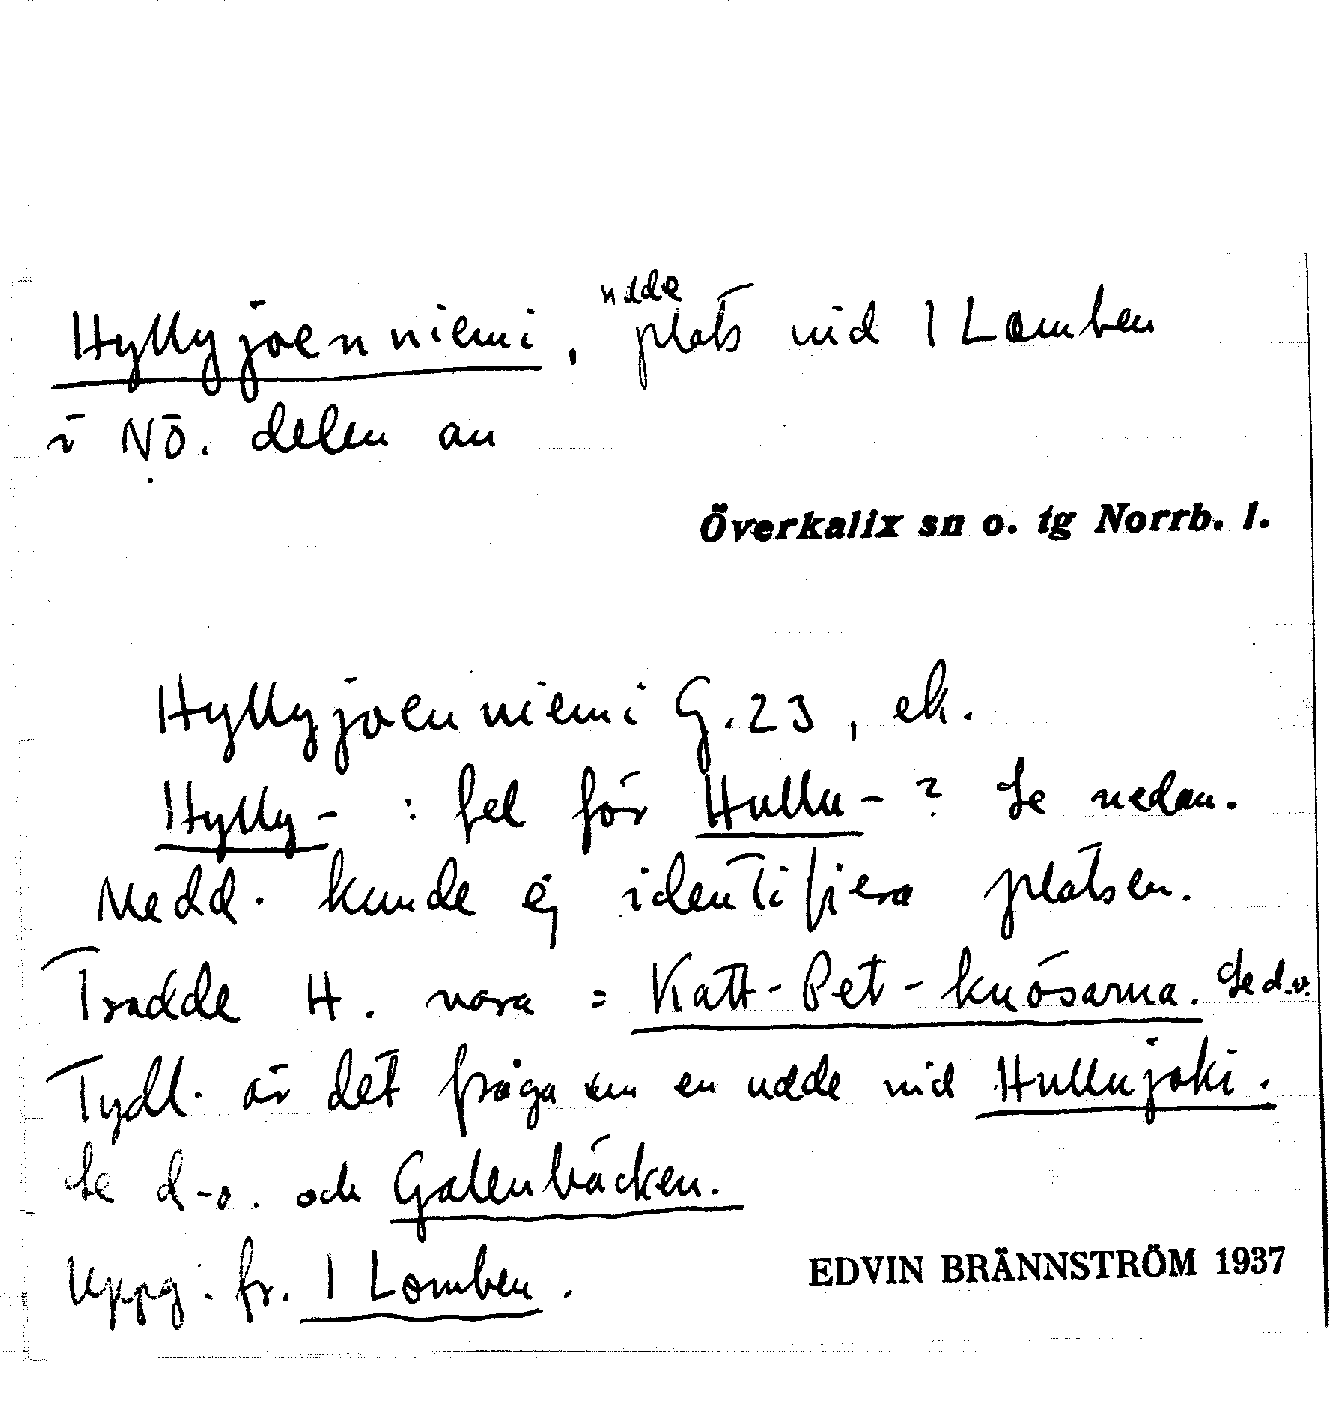 Hyllyjoenniemi, udde plats vid 1 Lomben
i NÖ. delen av
Överkalix sn o. tg Norrb. l.
Hyllyjoenniemi G. 23, ek.
Hylly- : fel för Hullu- ? Se nedan.
Medd. kunde ej identifiera platsen.
Trodde H. vara = Katt-Pet-knösarna. Se d.o.
Tydl. är det fråga om en udde vid Hullujoki.
Se d-o. och Galenbäcken.
Uppg. fr. 1 Lomben.
EDVIN BRÄNNSTRÖM 1937